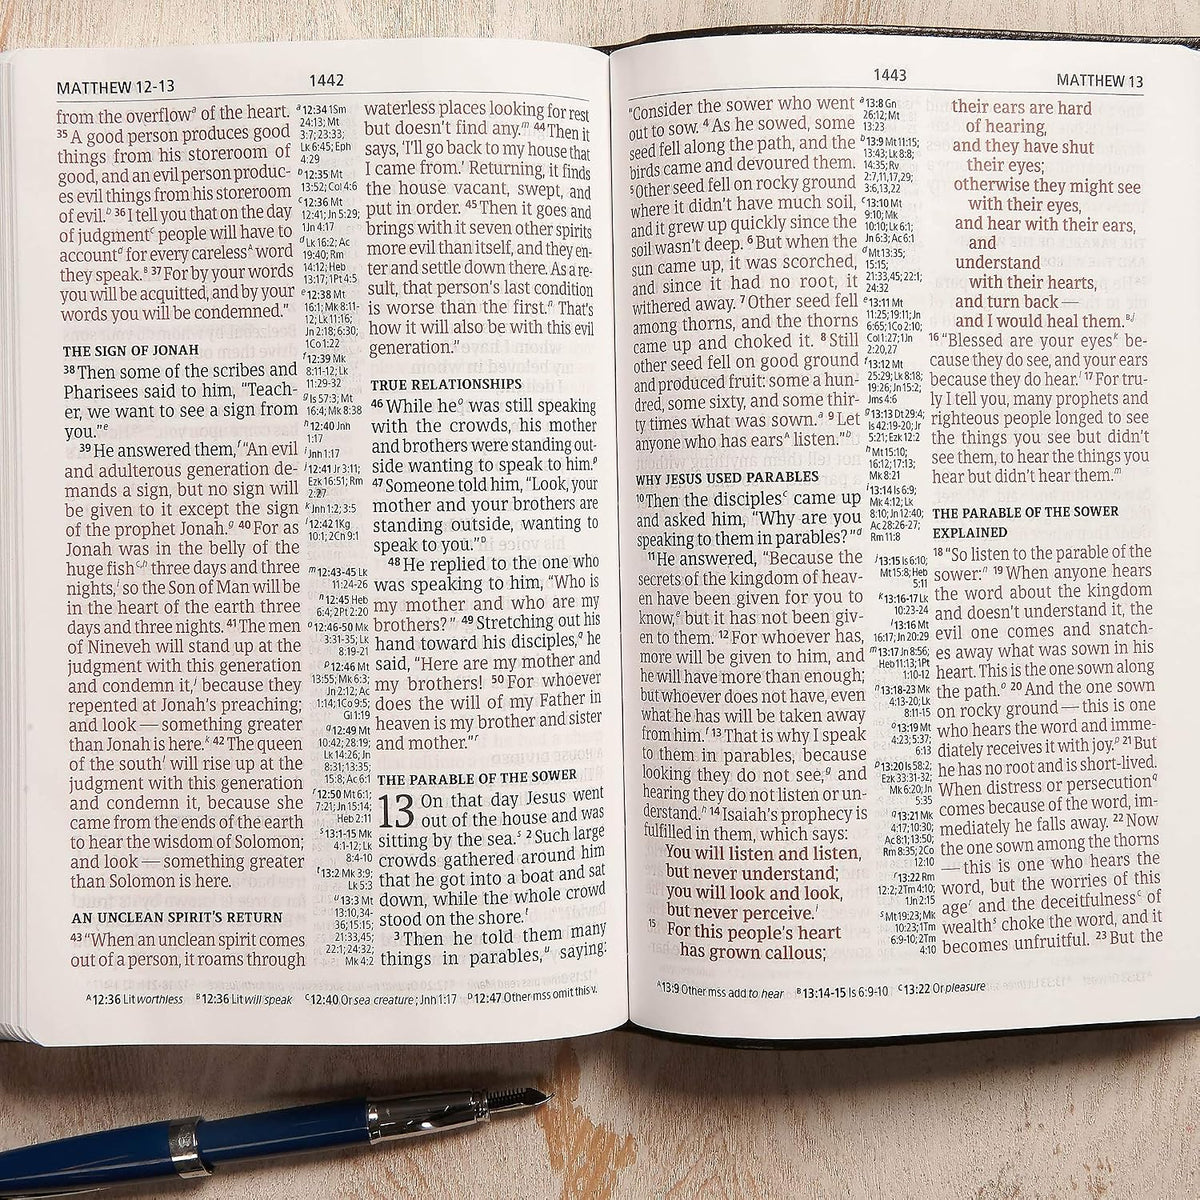 MATTHEW 12-13
1442
from the overflowᵃ of the heart.
³⁵ A good person produces good
things from his storeroom of
good, and an evil person produc-
es evil things from his storeroom
of evil.ᵇ ³⁶ I tell you that on the day
of judgmentᶜ people will have to
accountᵈ for every carelessᴬ word
they speak.ᴮ ³⁷ For by your words
you will be acquitted, and by your
words you will be condemned.”
THE SIGN OF JONAH
³⁸ Then some of the scribes and
Pharisees said to him, “Teach-
er, we want to see a sign from
you.”ᵉ
³⁹ He answered them,ᶠ “An evil
and adulterous generation de-
mands a sign, but no sign will
be given to it except the sign
of the prophet Jonah.ᵍ ⁴⁰ For as
Jonah was in the belly of the
huge fishᶜʰ three days and three
nights,ⁱ so the Son of Man will be
in the heart of the earth three
days and three nights. ⁴¹ The men
of Nineveh will stand up at the
judgment with this generation
and condemn it,ʲ because they
repented at Jonah’s preaching;
and look — something greater
than Jonah is here.ᵏ ⁴² The queen
of the southˡ will rise up at the
judgment with this generation
and condemn it, because she
came from the ends of the earth
to hear the wisdom of Solomon;
and look — something greater
than Solomon is here.
AN UNCLEAN SPIRIT’S RETURN
⁴³ “When an unclean spirit comes
out of a person, it roams through
ᵃ12:34 1Sm
24:13; Mt
3:7; 23:33;
Lk 6:45; Eph
4:29
ᵇ12:35 Mt
13:52; Col 4:6
ᶜ12:36 Mt
12:41; Jn 5:29;
1Jn 4:17
ᵈLk 16:2; Ac
19:40; Rm
14:12; Heb
13:17; 1Pt 4:5
ᵉ12:38 Mt
16:1; Mk 8:11-
12; Lk 11:16;
Jn 2:18; 6:30;
1Co 1:22
ᶠ12:39 Mk
8:11-12; Lk
11:29-32
ᵍIs 57:3; Mt
16:4; Mk 8:38
ʰ12:40 Jnh
1:17
ⁱJnh 1:17
ʲ12:41 Jr 3:11;
Ezk 16:51; Rm
2:27
ᵏJnh 1:2; 3:5
ˡ12:42 1Kg
10:1; 2Ch 9:1
ᵐ12:43-45 Lk
11:24-26
ⁿ12:45 Heb
6:4; 2Pt 2:20
ᵒ12:46-50 Mk
3:31-35; Lk
8:19-21
ᵖ12:46 Mt
13:55; Mk 6:3;
Jn 2:12; Ac
1:14; 1Co 9:5;
Gl 1:19
q12:49 Mt
10:42; 28:19;
Lk 14:26; Jn
8:31; 13:35;
15:8; Ac 6:1
ʳ12:50 Mt 6:1;
7:21; Jn 15:14;
Heb 2:11
ˢ13:1-15 Mk
4:1-12; Lk
8:4-10
ᵗ13:2 Mk 3:9;
Lk 5:3
ᵘ13:3 Mt
13:10,34-
36; 15:15;
21:33,45;
22:1; 24:32;
Mk 4:2
waterless places looking for rest
but doesn’t find any.ᵐ ⁴⁴ Then it
says, ‘I’ll go back to my house that
I came from.’ Returning, it finds
the house vacant, swept, and
put in order. ⁴⁵ Then it goes and
brings with it seven other spirits
more evil than itself, and they en-
ter and settle down there. As a re-
sult, that person’s last condition
is worse than the first.ⁿ That’s
how it will also be with this evil
generation.”
TRUE RELATIONSHIPS
⁴⁶ While heᵒ was still speaking
with the crowds, his mother
and brothers were standing out-
side wanting to speak to him.ᵖ
⁴⁷ Someone told him, “Look, your
mother and your brothers are
standing outside, wanting to
speak to you.”ᴰ
⁴⁸ He replied to the one who
was speaking to him, “Who is
my mother and who are my
brothers?” ⁴⁹ Stretching out his
hand toward his disciples,q he
said, “Here are my mother and
my brothers! ⁵⁰ For whoever
does the will of my Father in
heaven is my brother and sister
and mother.”ʳ
THE PARABLE OF THE SOWER
13 On that day Jesus went
out of the house and was
sitting by the sea.ˢ ² Such large
crowds gathered around him
that he got into a boat and sat
down, while the whole crowd
stood on the shore.ᵗ
³ Then he told them many
things in parables,ᵘ saying:
ᴬ12:36 Lit worthless ᴮ12:36 Lit will speak ᶜ12:40 Or sea creature; Jnh 1:17 ᴰ12:47 Other mss omit this v.
1443
MATTHEW 13
“Consider the sower who went
out to sow. ⁴ As he sowed, some
seed fell along the path, and the
birds came and devoured them.
⁵ Other seed fell on rocky ground
where it didn’t have much soil,
and it grew up quickly since the
soil wasn’t deep. ⁶ But when the
sun came up, it was scorched,
and since it had no root, it
withered away. ⁷ Other seed fell
among thorns, and the thorns
came up and choked it. ⁸ Still
other seed fell on good ground
and produced fruit: some a hun-
dred, some sixty, and some thir-
ty times what was sown.ᵃ ⁹ Let
anyone who has earsᴬ listen.”ᵇ
WHY JESUS USED PARABLES
¹⁰ Then the disciplesᶜ came up
and asked him, “Why are you
speaking to them in parables?”ᵈ
¹¹ He answered, “Because the
secrets of the kingdom of heav-
en have been given for you to
know,ᵉ but it has not been giv-
en to them. ¹² For whoever has,
more will be given to him, and
he will have more than enough;
but whoever does not have, even
what he has will be taken away
from him.ᶠ ¹³ That is why I speak
to them in parables, because
looking they do not see,ᵍ and
hearing they do not listen or un-
derstand.ʰ ¹⁴ Isaiah’s prophecy is
fulfilled in them, which says:
You will listen and listen,
but never understand;
you will look and look,
but never perceive.ⁱ
¹⁵ For this people’s heart
has grown callous;
ᵃ13:8 Gn
26:12; Mt
13:23
ᵇ13:9 Mt 11:15;
13:43; Lk 8:8;
14:35; Rv
2:7,11,17,29;
3:6,13,22
ᶜ13:10 Mt
9:10; Mk
10:10; Lk 6:1;
Jn 6:3; Ac 6:1
ᵈMt 13:35;
15:15;
21:33,45; 22:1;
24:32
ᵉ13:11 Mt
11:25; 19:11; Jn
6:65; 1Co 2:10;
Col 1:27; 1Jn
2:20,27
ᶠ13:12 Mt
25:29; Lk 8:18;
19:26; Jn 15:2;
Jms 4:6
ᵍ13:13 Dt 29:4;
Is 42:19-20; Jr
5:21; Ezk 12:2
ʰMt 15:10;
16:12; 17:13;
Mk 8:21
ⁱ13:14 Is 6:9;
Mk 4:12; Lk
8:10; Jn 12:40;
Ac 28:26-27;
Rm 11:8
ʲ13:15 Is 6:10;
Mt 15:8; Heb
5:11
ᵏ13:16-17 Lk
10:23-24
ˡ13:16 Mt
16:17; Jn 20:29
ᵐ13:17 Jn 8:56;
Heb 11:13; 1Pt
1:10-12
ⁿ13:18-23 Mk
4:13-20; Lk
8:11-15
ᵒ13:19 Mt
4:23; 5:37;
6:13
ᵖ13:20 Is 58:2;
Ezk 33:31-32;
Mk 6:20; Jn
5:35
q13:21 Mk
4:17; 10:30;
Ac 8:1; 13:50;
Rm 8:35; 2Co
12:10
ʳ13:22 Rm
12:2; 2Tm 4:10;
1Jn 2:15
ˢMt 19:23; Mk
10:23; 1Tm
6:9-10; 2Tm
4:10
their ears are hard
of hearing,
and they have shut
their eyes;
otherwise they might see
with their eyes,
and hear with their ears,
and
understand
with their hearts,
and turn back —
and I would heal them.ᴮʲ
¹⁶ “Blessed are your eyesᵏ be-
cause they do see, and your ears
because they do hear.ˡ ¹⁷ For tru-
ly I tell you, many prophets and
righteous people longed to see
the things you see but didn’t
see them, to hear the things you
hear but didn’t hear them.ᵐ
THE PARABLE OF THE SOWER
EXPLAINED
¹⁸ “So listen to the parable of the
sower:ⁿ ¹⁹ When anyone hears
the word about the kingdom
and doesn’t understand it, the
evil one comes and snatch-
es away what was sown in his
heart. This is the one sown along
the path.ᵒ ²⁰ And the one sown
on rocky ground — this is one
who hears the word and imme-
diately receives it with joy.ᵖ ²¹ But
he has no root and is short-lived.
When distress or persecutionq
comes because of the word, im-
mediately he falls away. ²² Now
the one sown among the thorns
— this is one who hears the
word, but the worries of this
ageʳ and the deceitfulnessᶜ of
wealthˢ choke the word, and it
becomes unfruitful. ²³ But the
ᴬ13:9 Other mss add to hear ᴮ13:14-15 Is 6:9-10 ᶜ13:22 Or pleasure